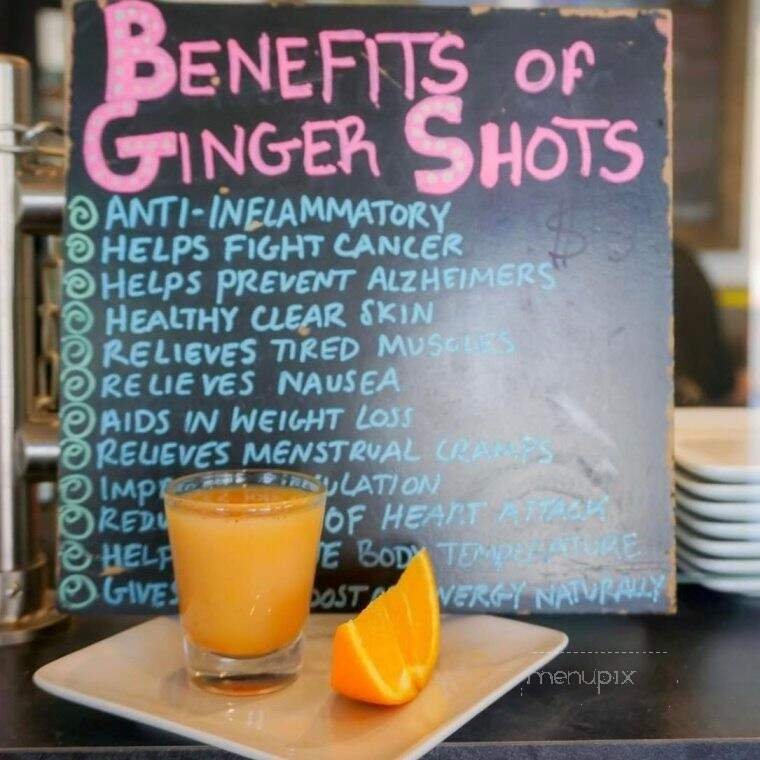 BENEFITS OF
GINGER SHOTS
ANTI-INFLAMMATORY
HELPS FIGHT CANCER
HELPS PREVENT ALZHEIMERS
HEALTHY CLEAR SKIN
RELIEVES TIRED MUSCLES
RELIEVES NAUSEA
AIDS IN WEIGHT LOSS
RELIEVES MENSTRUAL CRAMPS
OF HEART ATTACK
BODY TEMPERATURE
GIVES NATURALLY
menupix